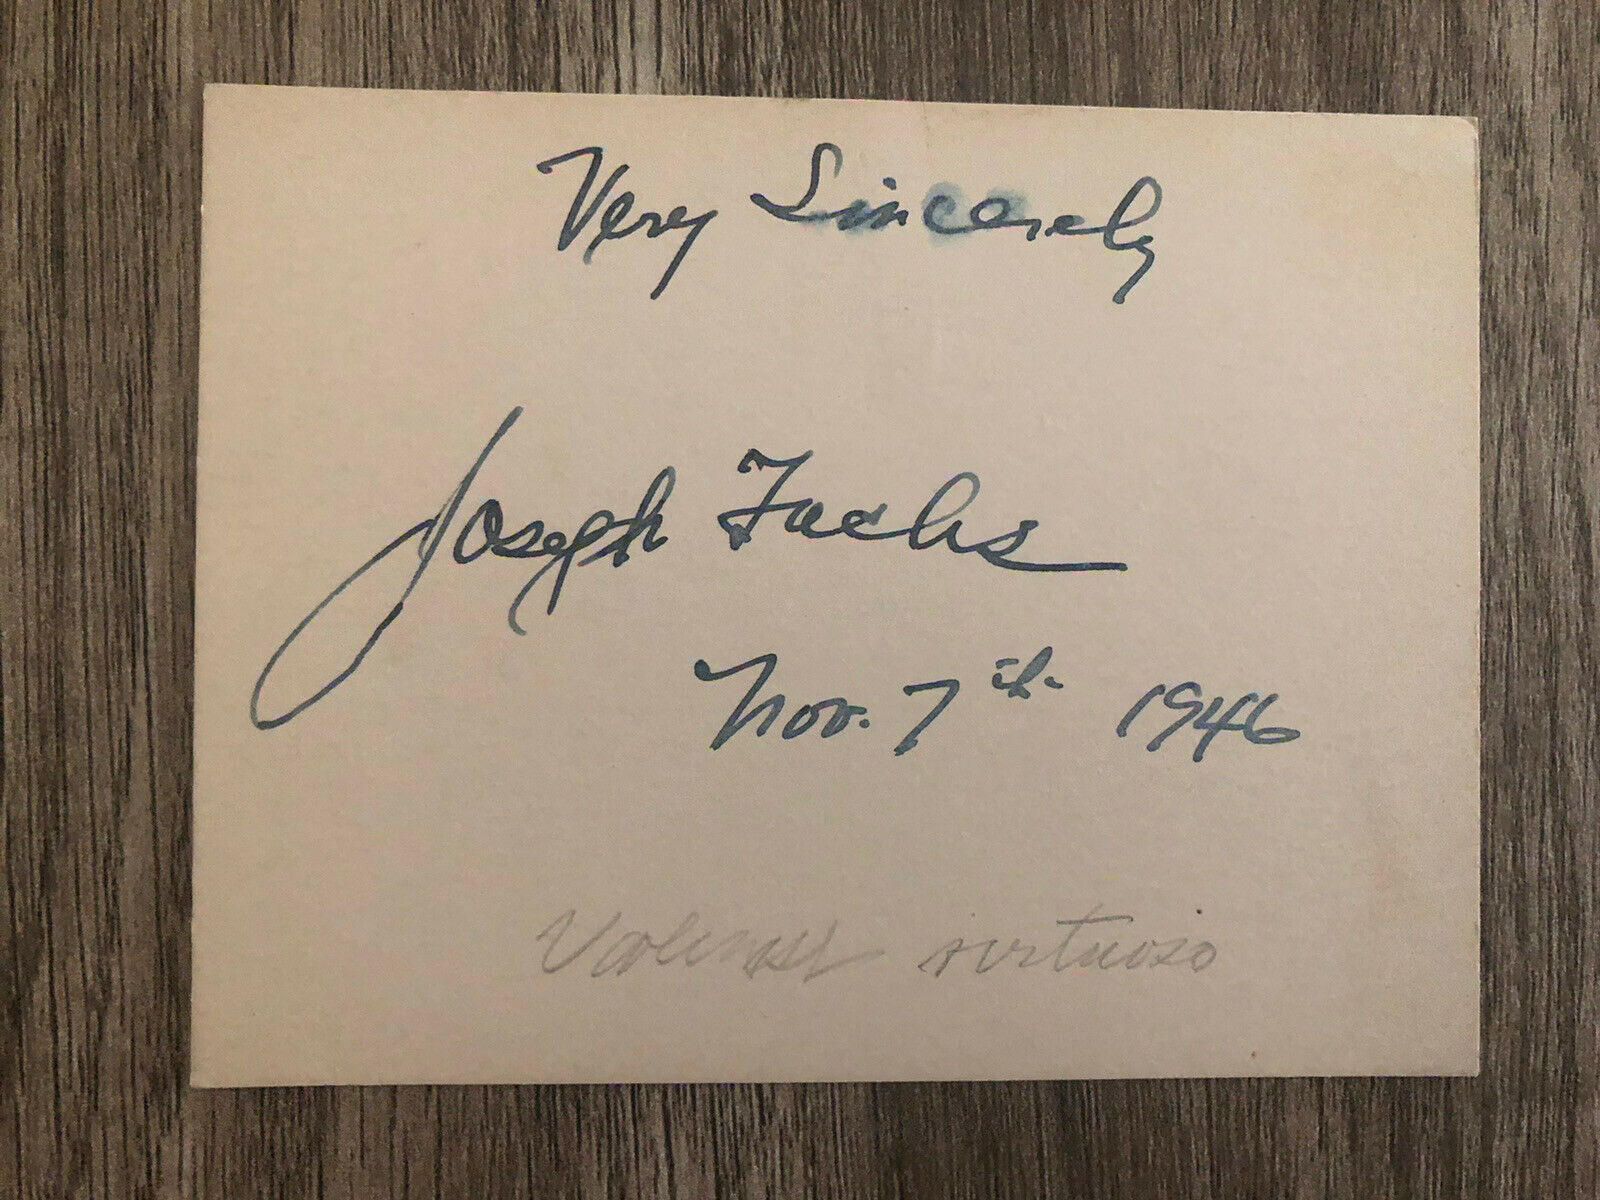 Very Sincerely
Joseph Fuchs
Nov. 7th 1946
Violinist virtuoso